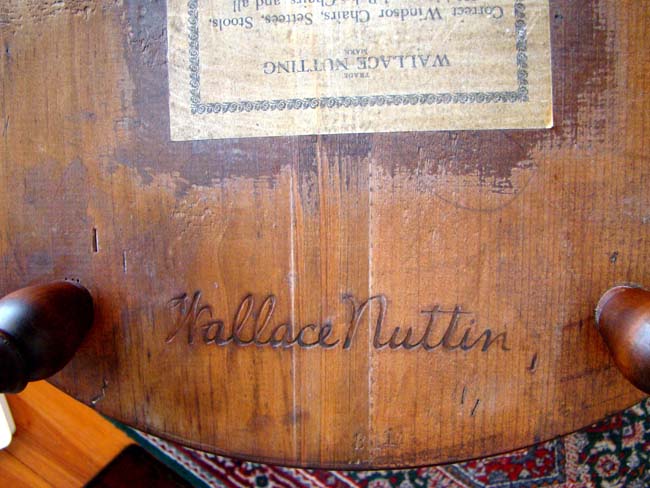 TRADE
WALLACE NUTTING
MARK
Correct Windsor Chairs, Settees, Stools,
Chairs, and all
Wallace Nuttin